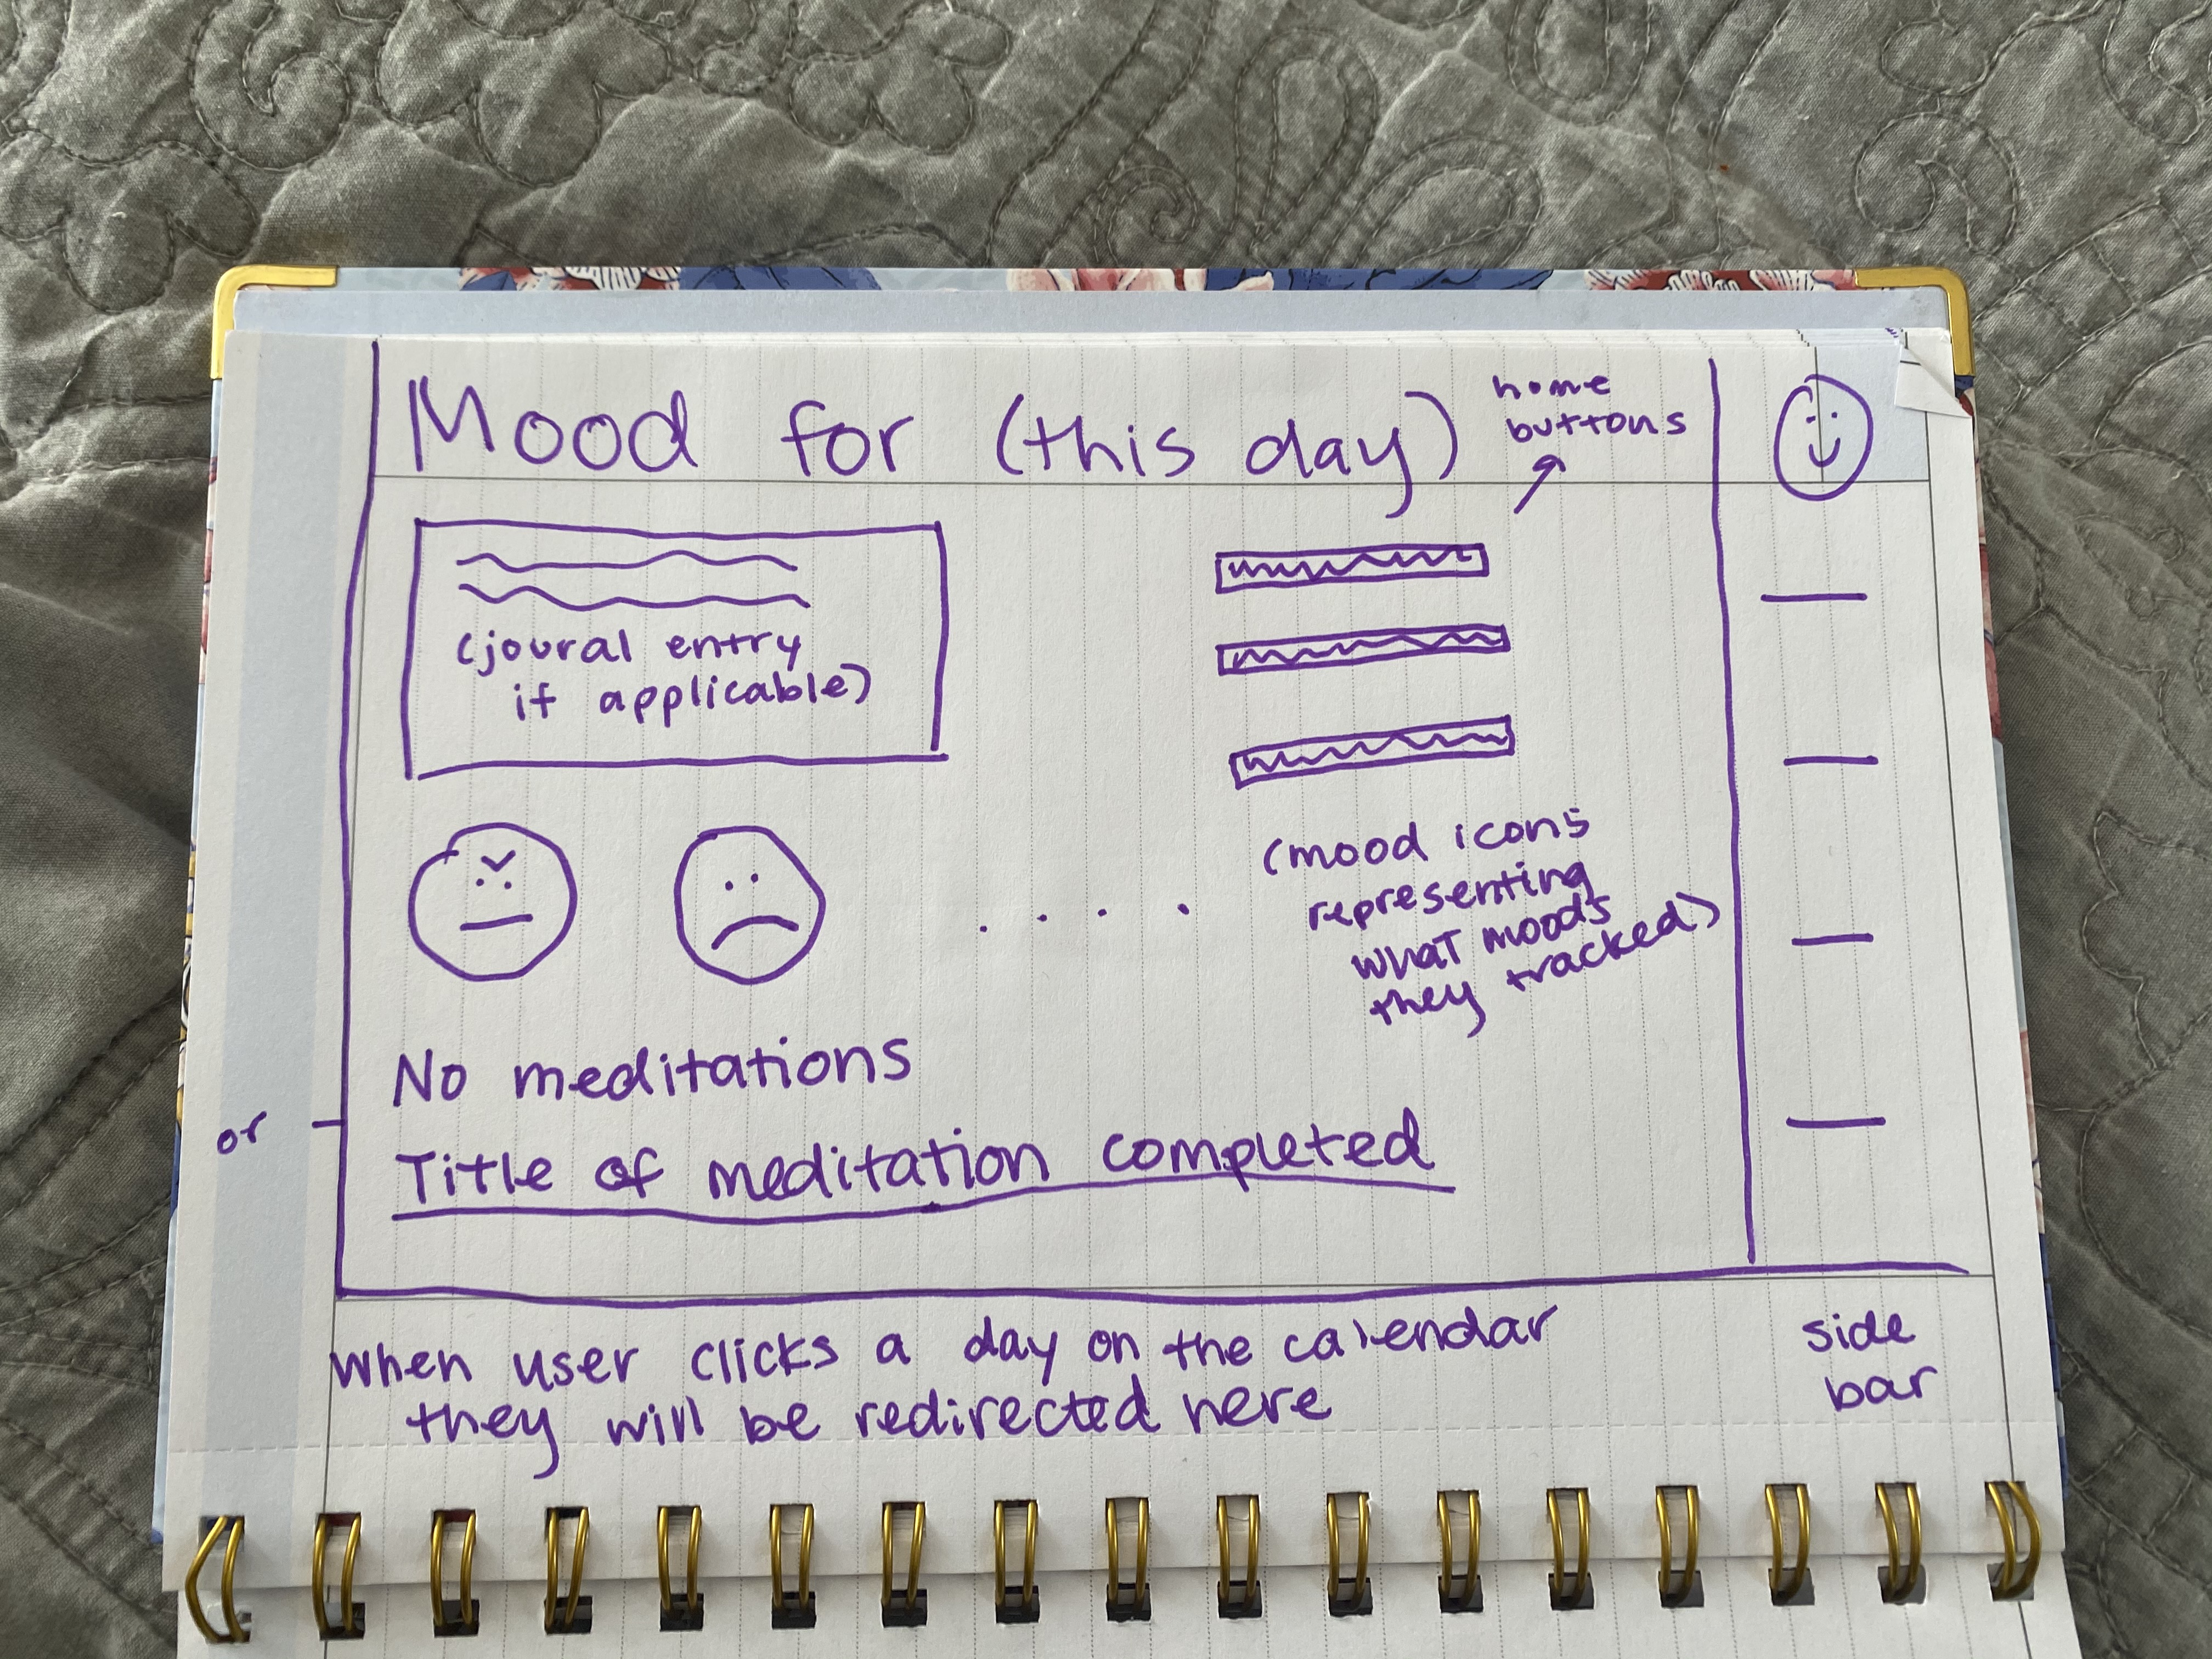 Mood for (this day)
home
buttons
(joural entry
if applicable)
(mood icons
representing
what moods
they tracked)
No meditations
or -
Title of meditation completed
when user clicks a day on the calendar
they will be redirected here
side
bar